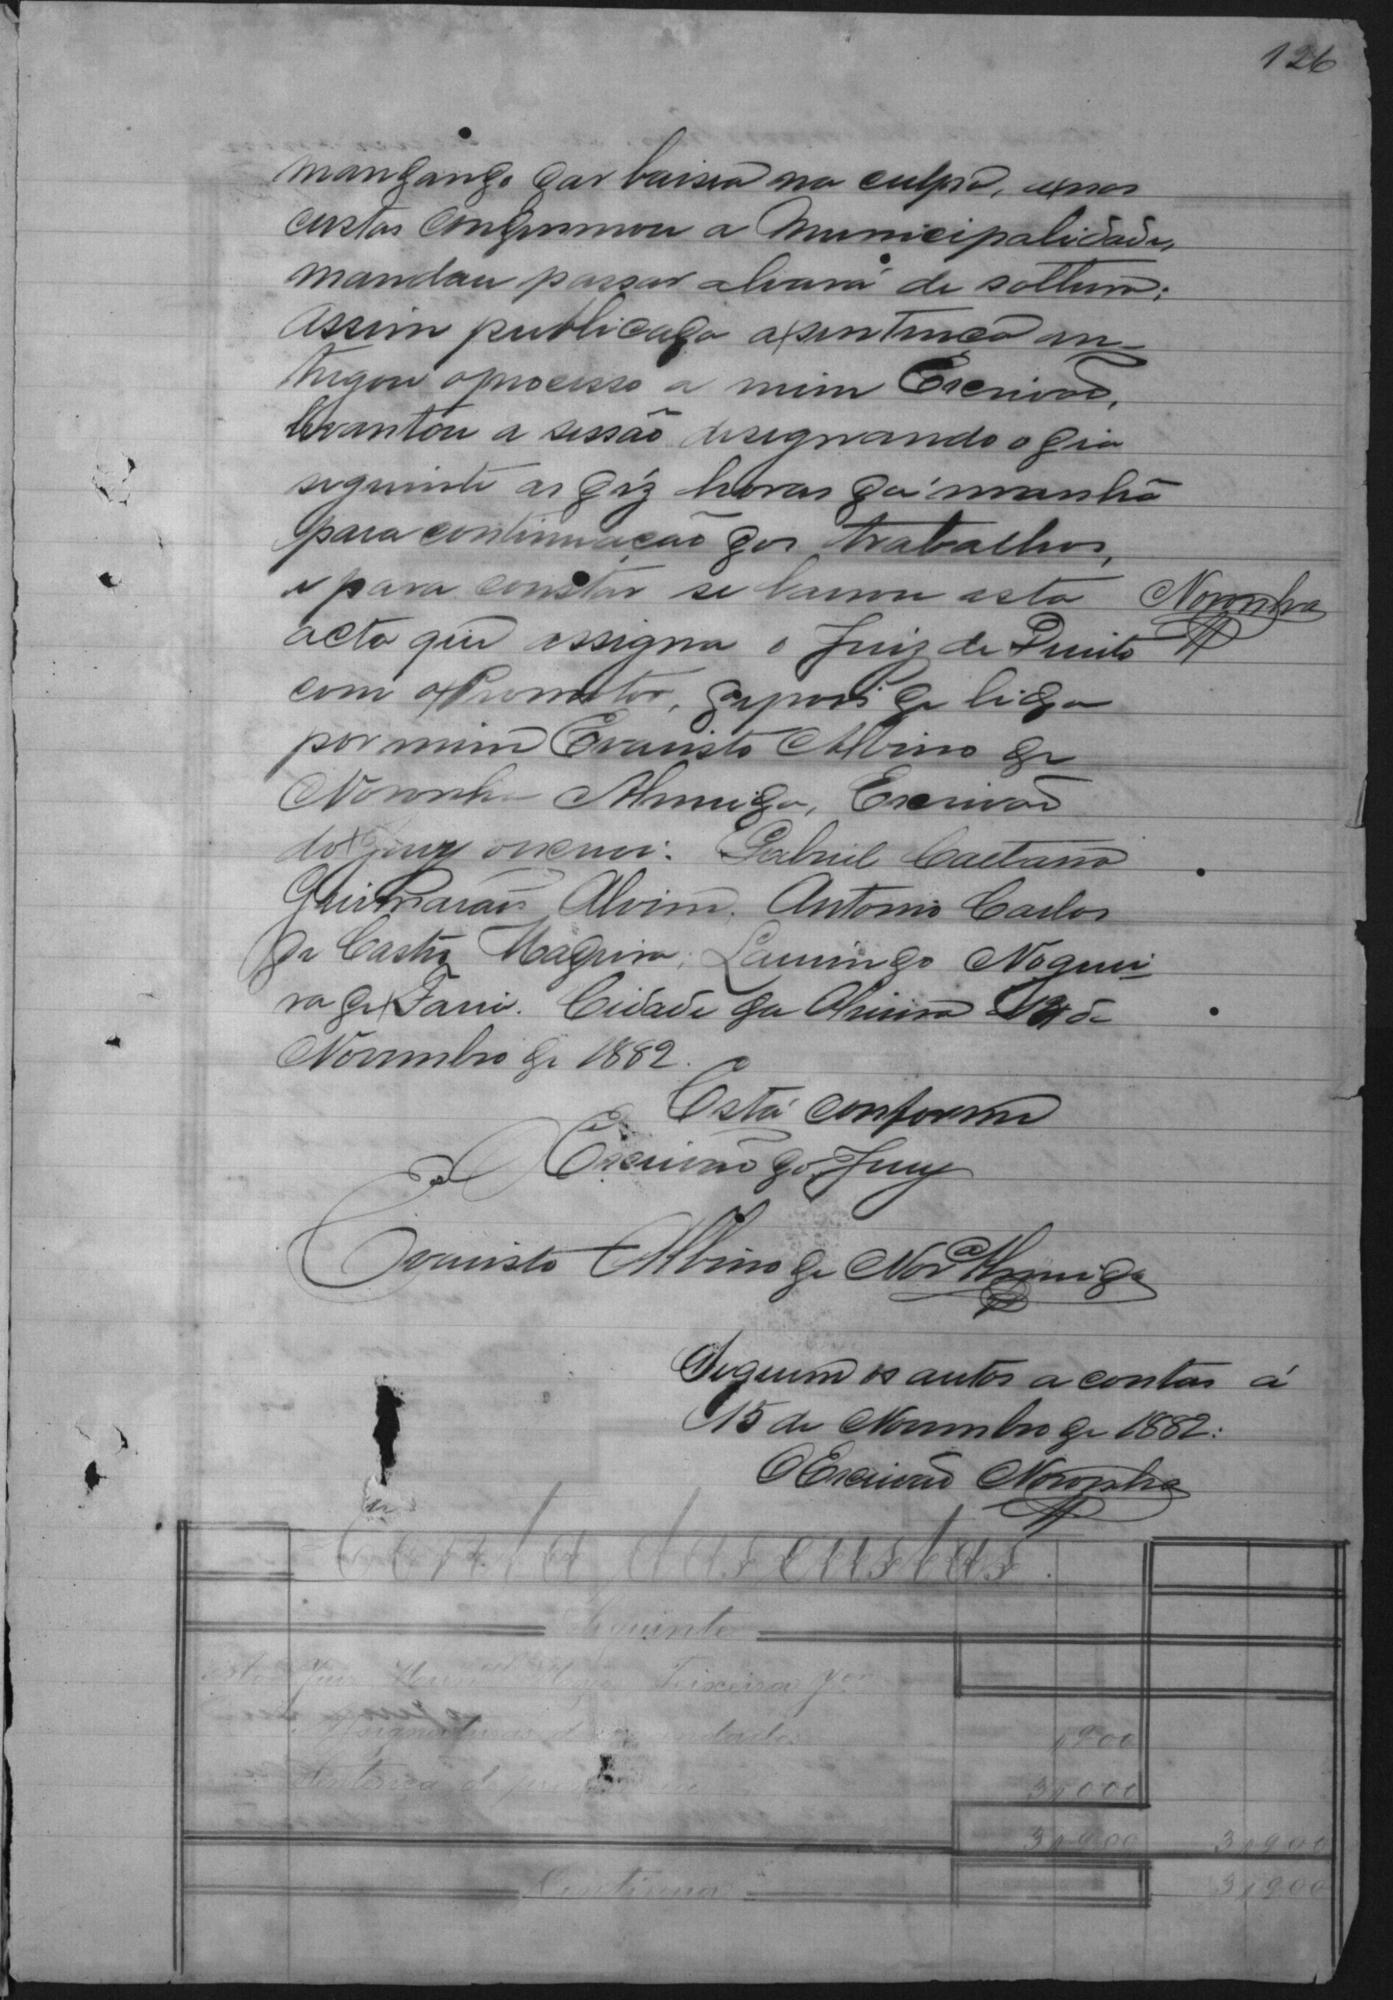 126
mandando dar baixa na culpa, e nas
custas condemnou a Municipalidade,
mandou passar alvará de soltura;
Assim publicada a sentença en-
tregou o processo a mim Escrivão,
levantou a sessão designando o dia
seguinte as déz horas da manhã
para continuação dos trabalhos,
e para constar se lavrou esta
Noronha
acta que assigna o Juiz de Direito
com o Promotor, depois de lida
por mim Evaristo Albino de
Noronha Almeida, Escrivão
do Jury escrevi. Gabriel Caetano
Guimarães Alvim. Antonio Carlos
de Castro Madeira;
Noguei
ra de Faria. Cidade da
de
Novembro de 1882.
Está conforme
Escrivão do Jury
Evaristo Albino de Nor.ª Almeida
Seguem os autos a contar á
15 de Novembro de 1882:
O Escrivão Noronha
Conta das custas.
Seguinte
Juiz
Teixeira
Assignaturas de mandados
$900
Sentença de
3$000
3$900 3$900
Continua
3$900